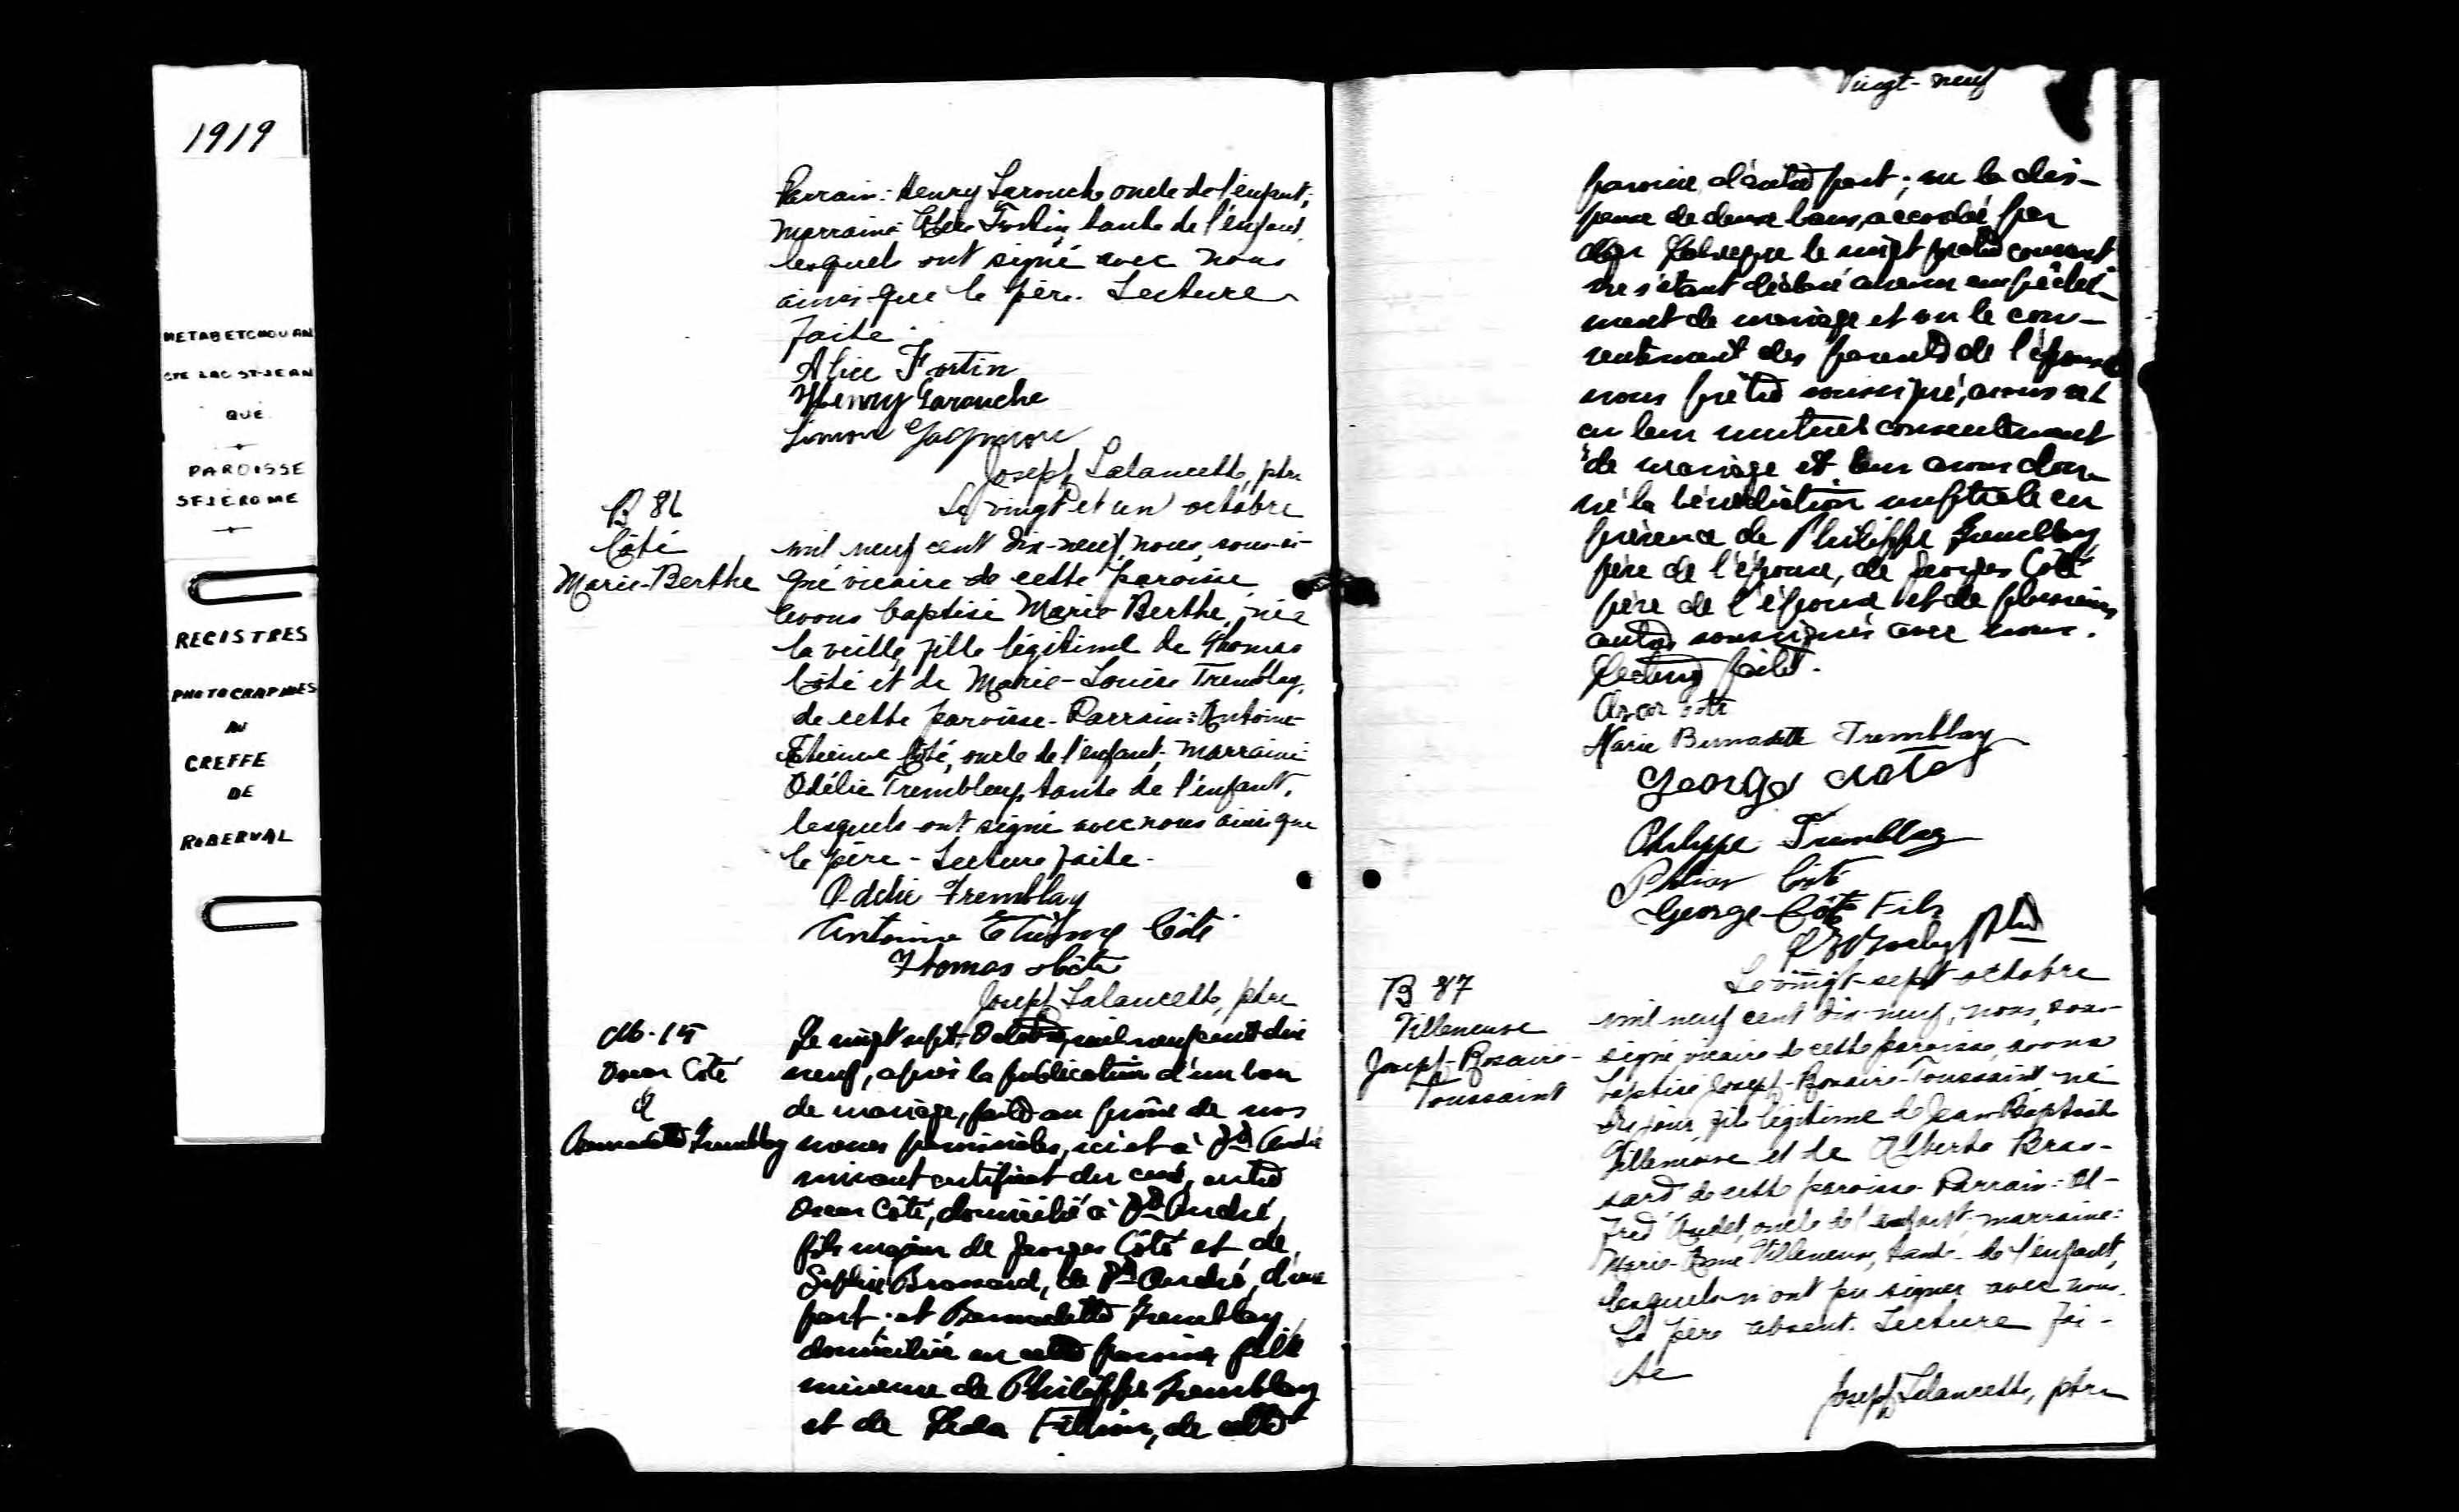 1919
METABETCHOUAN
CTE LAC ST-JEAN
QUE
PAROISSE
ST JEROME
REGISTRES
PHOTOGRAPHIES
AU
GREFFE
DE
ROBERVAL
Parrain: Henry Larouche oncle de l'enfant;
Marraine Fortin, tante de l'enfant,
lesquels ont signé avec nous
ainsi que le père. Lecture
faite.
Alice Fortin
Henry Larouche
Simon Gagnon
Joseph Lalancette, ptre
B 86
Côté
Marie-Berthe
Le vingt et un octobre
mil neuf cent dix-neuf, nous, sous-si-
gné vicaire de cette paroisse,
avons baptisé Marie Berthe, née
la veille, fille légitime de Thomas
Côté et de Marie-Louise Tremblay,
de cette paroisse - Parrain: Antoine-
Etienne Côté, oncle de l'enfant; marraine
Odélie Tremblay, tante de l'enfant,
lesquels ont signé avec nous ainsi que
le père - Lecture faite -
Odélie Tremblay
Antoine Etienne Côté
Thomas Côté
Joseph Lalancette, ptre
Oscar Côté
&
Bernadette Tremblay
Le vingt sept Octobre, mil neuf cent dix
neuf, après la publication d'un ban
de mariage, faite au prône de nos
messes paroissiales, ici et à St André
suivant certificat du curé, entre
Oscar Côté, domicilié à St André,
fils majeur de Georges Côté et de
Brassard, de St André, d'une
part; et Bernadette Tremblay,
domiciliée en cette paroisse, fille
mineure de Philippe Tremblay
et de Leda Fillion, de cette
Vingt-neuf
paroisse, d'autre part; vu la dis-
pense de deux bans, accordée par
Mgr Labrecque le vingt quatre courant
ne s'étant déclaré aucun empêche-
ment de mariage et vu le con-
sentement des parents de l'épouse
nous prêtre soussigné, avons
eu leur mutuel consentement
de mariage et leur avons don-
né la bénédiction nuptiale en
présence de Philippe Tremblay,
père de l'épouse, de Georges Côté
père de l'époux et de plusieurs
autres soussignés avec nous.
Lecture faite.
Oscar Coté
Marie Bernadette Tremblay
George
Philippe Tremblay
Côté
George Côté Fils
B 87
Villeneuve
Joseph-Rosaire-
Toussaint
Le vingt-sept octobre
mil neuf cent dix-neuf, nous, sous-
signé vicaire de cette paroisse, avons
baptisé Joseph-Rosaire-Toussaint né
ce jour, fils légitime de Jean Baptiste
Villeneuve et de Alberta Bras-
sard de cette paroisse. Parrain: Al-
fred Audet, oncle de l'enfant; marraine:
Marie-Anne Villeneuve, tante de l'enfant,
lesquels n'ont pu signer avec nous.
Le père absent. Lecture fai-
te
Joseph Lalancette, ptre